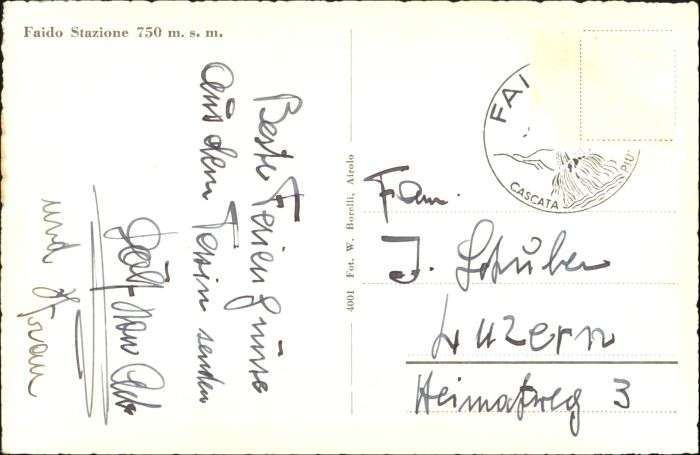 Faido Stazione 750 m. s. m.
Beste Feriengrüsse
aus dem Tessin senden
und Frau
4001 Fot. W. Borelli, Airolo
FAI
CASCATA
PIU
Fam.
J. Schuber
Luzern
Heimatweg 3